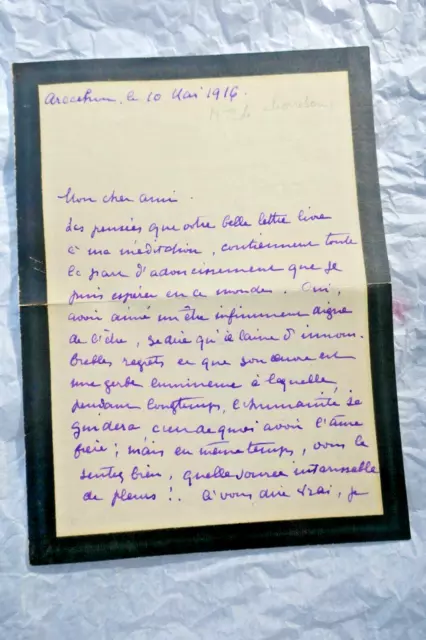 Arcachon, le 10 Mai 1916.
Mon cher ami.
Les pensées que votre belle lettre livre
à ma méditation, contiennent toute
la part d'adoucissement que je
puis espérer en ce monde. Oui,
avoir aimé un être infiniment digne
de l'être, se dire qu'il laisse d'innom-
brables regrets et que son œuvre est
une gerbe lumineuse à laquelle,
pendant longtemps, l'humanité se
guidera c'est de quoi avoir l'âme
fière; mais en même temps, vous le
sentez bien, quelle source intarissable
de pleurs!. A vous dire vrai, je